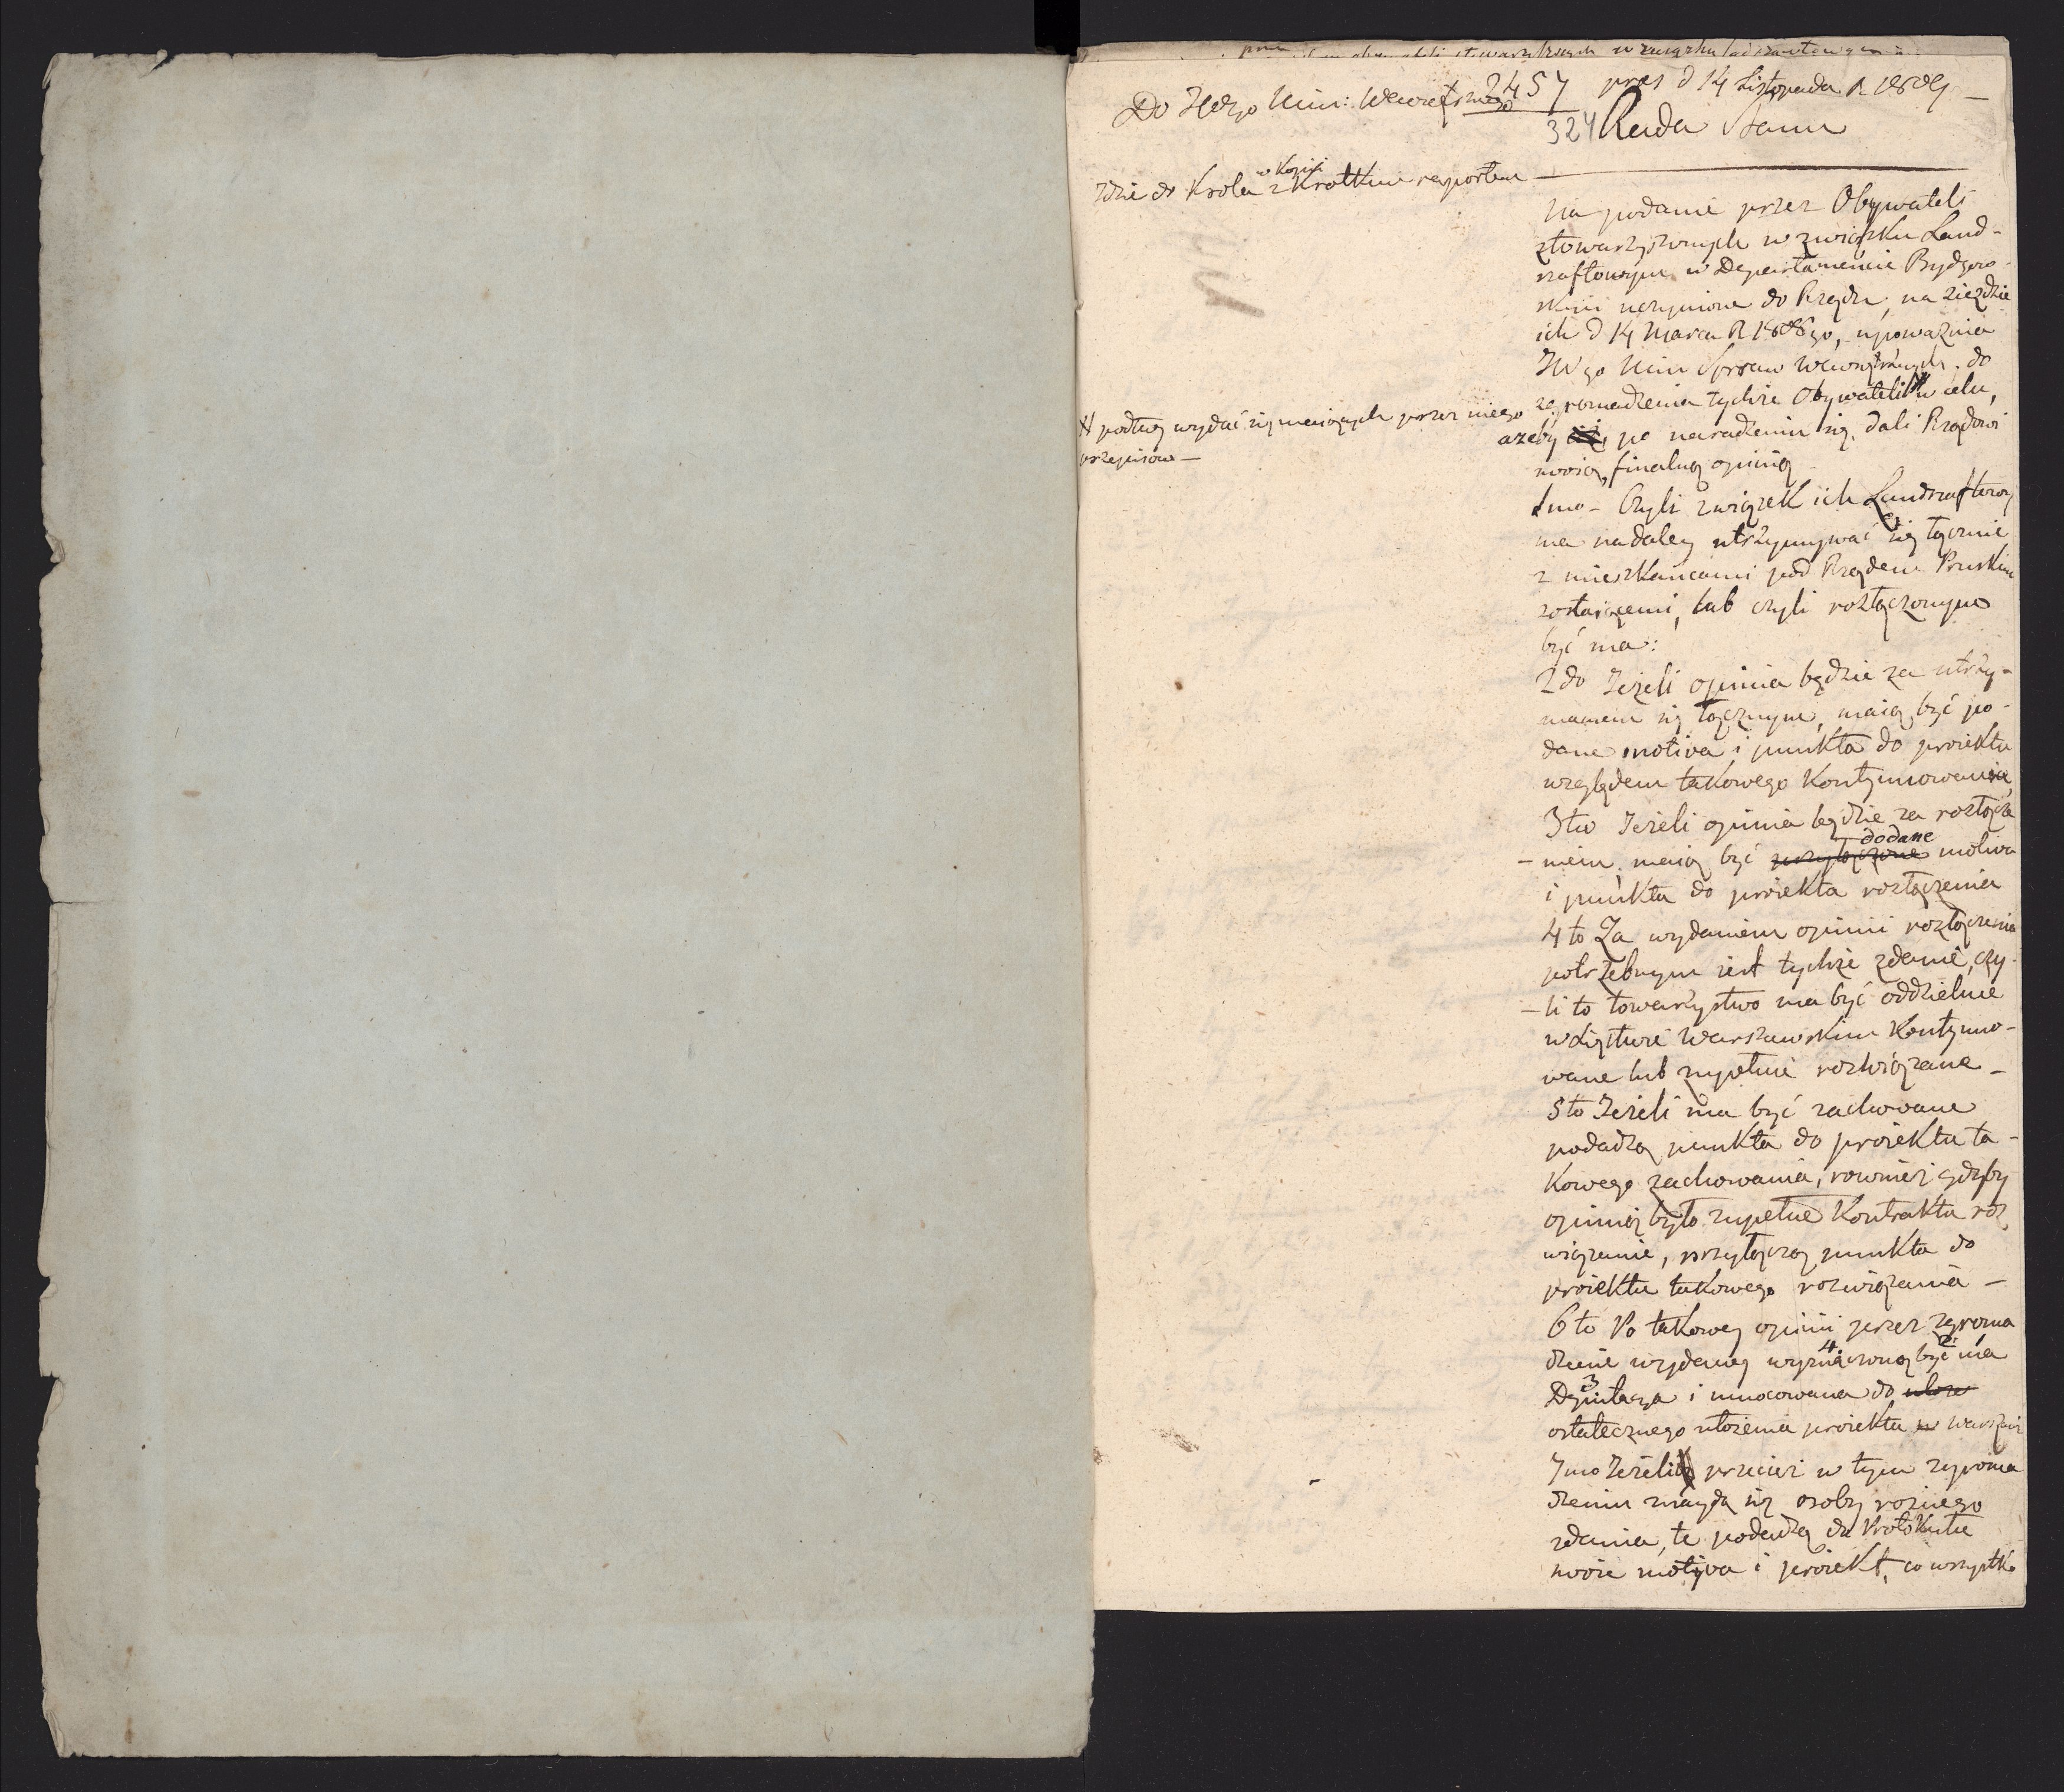 Do JWgo Min: Wewnętrznego
2457 pres d 14 Listopada R 1809 –
324 Rada Stanu
Idzie do Krola w Kopii z Krotkim raportem –
Na podanie przez Obywateli
stowarzyszonych w związku Land-
szaftowym w Departamencie Bydgos-
kim uczynione do Rządu, na zieźdie
ich d 14 Marca R 1808go, upoważnia
JWgo Min Spraw Wewnętrznych do
zgromadzenia tychże Obywateli # w celu,
# podług wydać się maiących przez niego
przepisow –
ażeby po naradzeniu się, dali Rządowi
swoią finalną opinią
1mo – Czyli związek ich Landszaftowy
ma nadaley utrzymywać się łącznie
z mieszkańcami pod Rządem Pruskim
zostaiącemi, lub czyli rozłączonym
być ma:
2do Jeżeli opinia będzie za utrzy-
maniem się łącznym, maią być po-
dane motiva i punkta do proiektu
względem takowego Kontynuowania,
3tio Jeżeli opinia będzie za rozłącze
– niem, maią być przyłączone dodane motiva
i punkta do proiektu rozłączenia
4to Za wydaniem opinii rozłączenia
potrzebnym iest tychże zdanie, czy-
– li to towarzystwo ma być oddzielnie
w Xięstwie Warszawskim Kontynuo-
wane lub zupełnie rozwiązane –
5to Jeżeli ma być zachowane
podadzą punkta do proiektu ta-
kowego zachowania, rownież gdyby
opinią było zupełne Kontraktu roz
wiązanie, przyłączą punkta do
proiektu takowego rozwiązania –
6to Po takowey opinii przez zgroma
dzenie wydaney wyznaczoną być ma
Deputacya i umocowana do ułoże
ostatecznego ułożenia proiektu w Warszawie
7mo Jeżeli przecież w tym zgroma
dzeniu znaydą się osoby rożnego
zdania, te podadzą do Protokułu
swoie motiva i proiekt, co wszystko